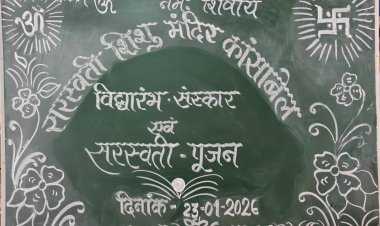 ॐ नमः शिवाय
ॐ
सरस्वती शिशु मंदिर कांसाबेल
विद्यारंभ-संस्कार
एवं
सरस्वती-पूजन
दिनांक- 23-01-2026